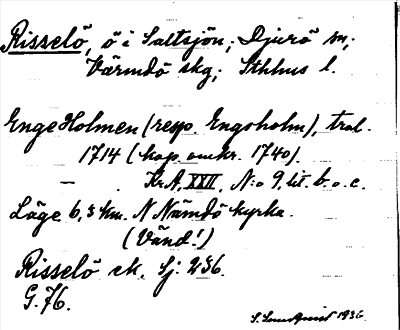 Risselö, ö i Saltsjön; Djurö sn;
Värmdö skg; Sthlms l.
Enge Holmen (resp. Engsholm), trol.
1714 (kop. omkr. 1740).
— KrA, XXII, N:o 9. lit. b. o. c.
Läge 6,3 km. N Nämdö kyrka.
(Vänd!)
Risselö ek. Sj: 236.
G. 76.
S. Sundquist 1936